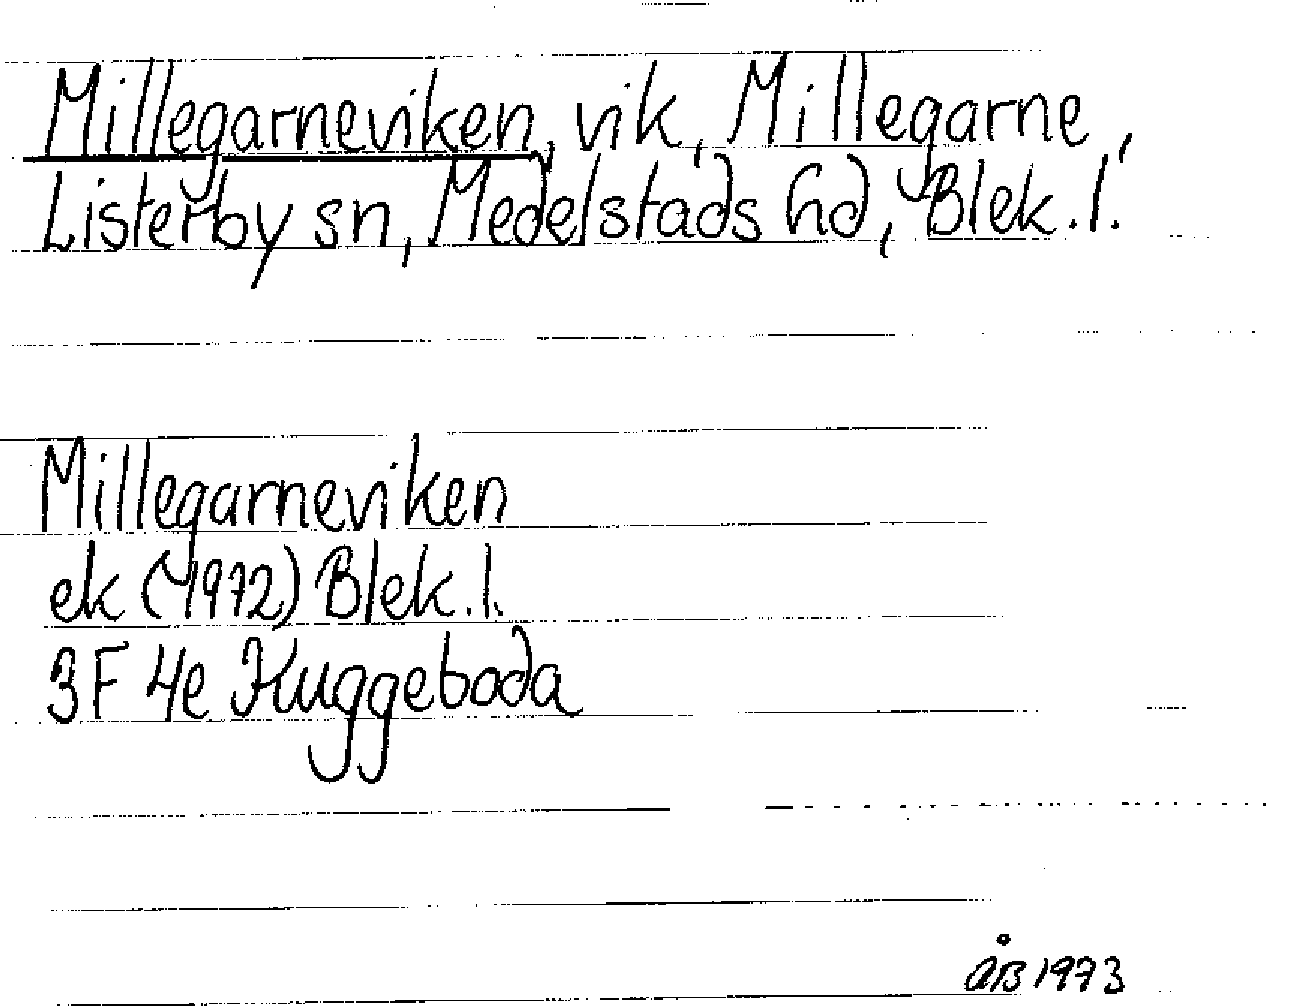 Millegarneviken, vik, Millegarne,
Listerby sn, Medelstads hd, Blek. l.
Millegarneviken
ek (1972) Blek. l.
3F 4e Kuggeboda
ÅB 1973